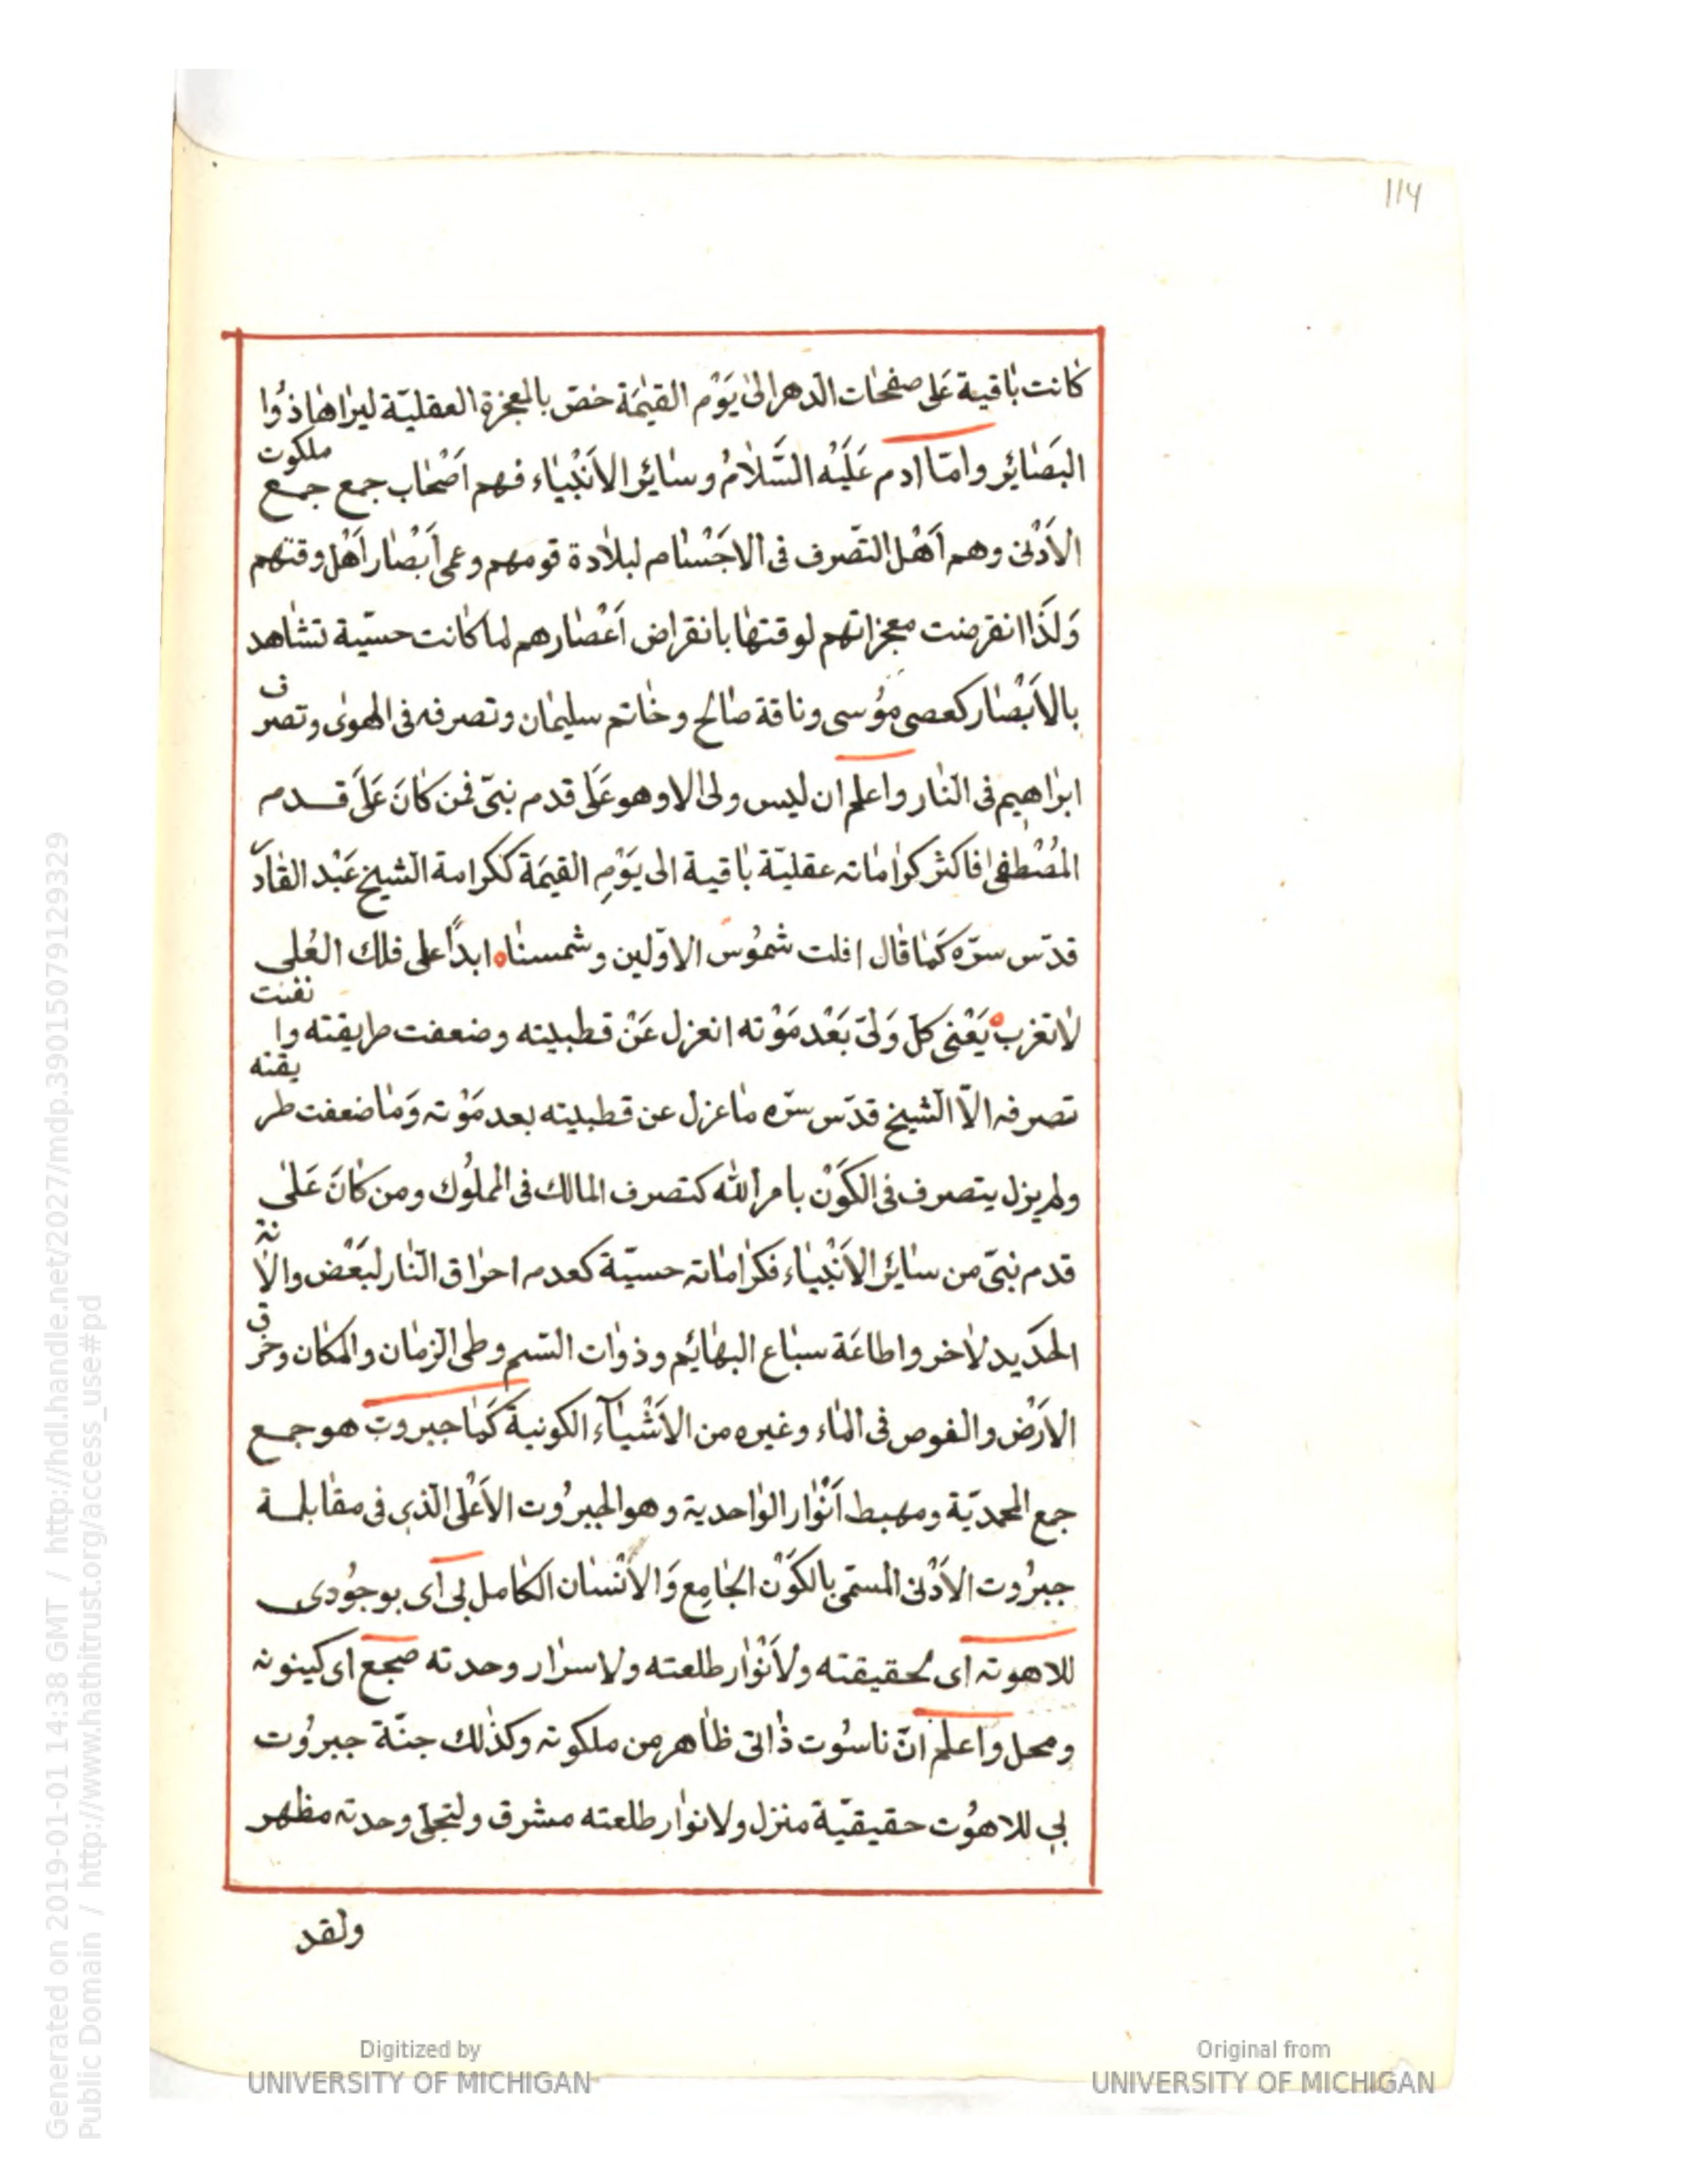 114
كانت باقية على صفحات الدهر الى يَوْم القيٰمَة خصّ بالمعجزة العقليّة ليراها ذوُا
البَصٰائِر وامّا ادم عَلَيْه السَّلامُ وسٰائِر الاَنْبيٰاء فهم اَصْحٰاب جمع جمع ملكوت
الاَدْنىٰ وهم اَهْل التّصرف فى الاجْسٰام لبلادة قومهم وعمى اَبْصٰار اَهْل وقتهم
وَلَذَا انقرضت معجزاتهم لوقتهٰا بانقراض اَعْصٰارهم لما كانت حسيّة تشاهد
بالاَبْصٰار كعصى موُسى وناقة صٰالح وخٰاتم سليمٰان وتصرفه فى الهوىٰ وتصرف
ابرٰاهيم فى النّار واعلم ان ليس ولى الا وهو عَلٰى قدم نبىّ فمن كٰانَ عَلٰى قدم
المُصْطفىٰ فاكثر كرٰامٰاته عقليّة بٰاقية الى يَوْمِ القيمَة ككرامة الشيخ عَبْد القٰادر
قدّس سرّه كَمٰا قٰال افلت شموُس الاوّلين وشمسنٰا ه ابداً على فلك العُلى
لاتغرب ه يَعْنى كلّ وَلىّ بَعْد مَوْته انعزل عَنْ قطبيته وضعفت طريقته وانفنت
تصرفه الاّ الشيخ قدّس سرّه مٰا عزل عن قطبيته بعد مَوْته وَمٰا ضعفت طريقته
ولم يزل يتصرف فى الكَوْن بامر الله كتصرف المالك فى المملوُك ومن كٰانَ عَلىٰ
قدم نبىّ من سٰائِر الاَنْبيٰاء فكرٰامٰاته حسيّة كعدم احرٰاق النّار لبَعْض والانة
الحَديد لاخر واطاعَة سبٰاع البهٰائِم وذوٰات السّم وطى الزمٰان والمكان وخرق
الاَرْض والغوص فى المٰاء وغيره من الاَشْيٰاء الكونية كَمٰا جبروت هو جمع
جمع المحمديّة ومهبط اَنْوٰار الوٰاحدية وهو الجبرُوت الاَعْلى الّذى فى مقٰابلة
جبرُوت الاَدْنىٰ المسمّى بالكَوْن الجٰامِع وَالاَنْسٰان الكٰامل بى اى بوجوُدى
للاهوته اى لحقيقته ولاَنْوٰار طلعته ولاسرٰار وحدته مجمع اى كينونه
ومحل واعلم انّ ناسُوت ذٰاتى ظٰاهر من ملكوته وكذٰلك جنّة جبرُوت
بى للاهوُت حقيقيّة منزل ولانوٰار طلعته مشرق ولتجلّى وحدته مظهر
ولقد
Generated on 2019-01-01 14:38 GMT / http://hdl.handle.net/2027/mdp.39015079129329
Public Domain / http://www.hathitrust.org/access_use#pd
Digitized by
UNIVERSITY OF MICHIGAN
Original from
UNIVERSITY OF MICHIGAN